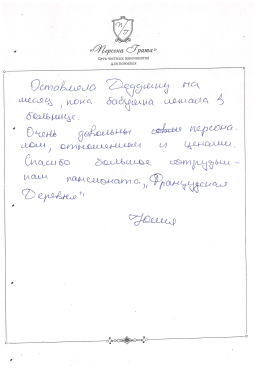 П Г
«Персона Грата»
Сеть частных пансионатов
для пожилых
Оставляла Дедушку на
месяц, пока бабушка лежала в
больнице.
Очень довольны персона-
лом, отношением и ценами.
Спасибо большое сотрудни-
кам пансионата „Французская
Деревня"
Юлия